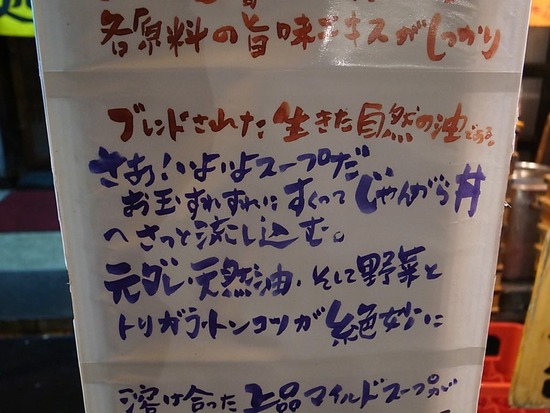 各原料の旨味エキスがしっかり
ブレンドされた生きた自然の油である。
さあ!いよいよスープだ
お玉すれすれにすくってじゃんがら丼
へさっと流し込む。
元ダレ・天然油・そして野菜と
トリガラ・トンコツが絶妙に
溶け合った上品マイルドスープが